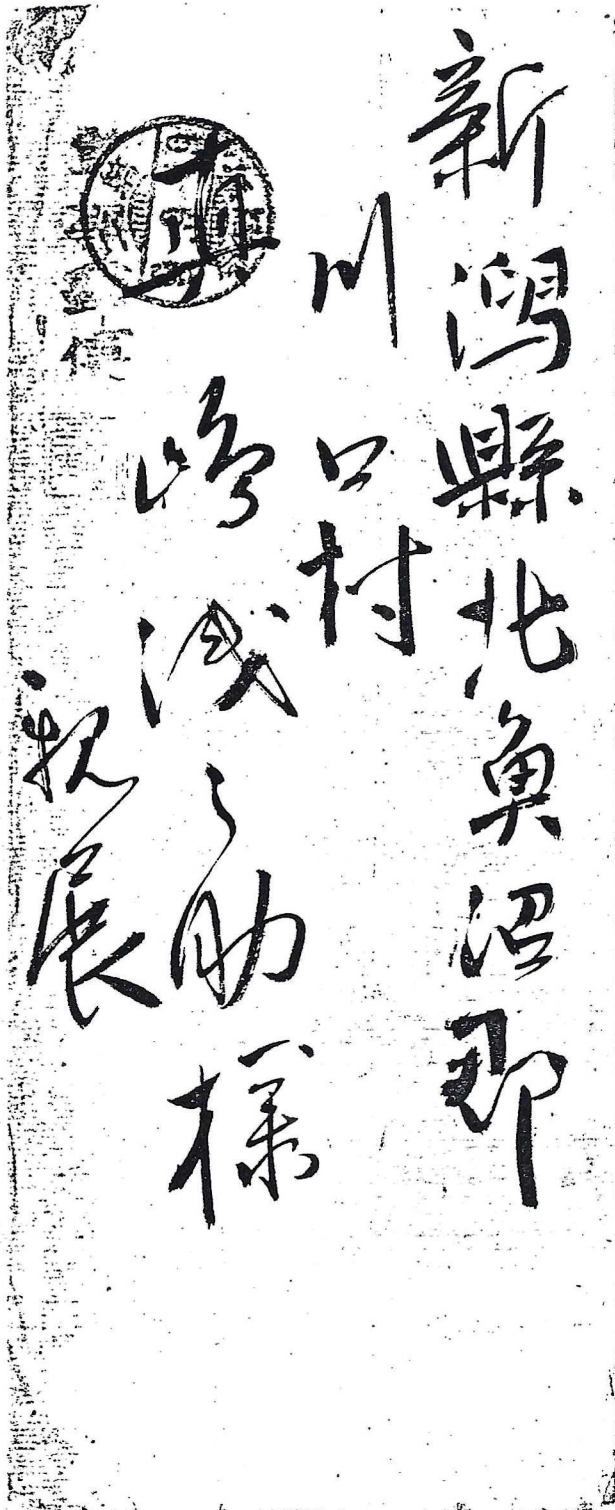 新潟縣北魚沼郡
川口村
崎浅之助様
親展